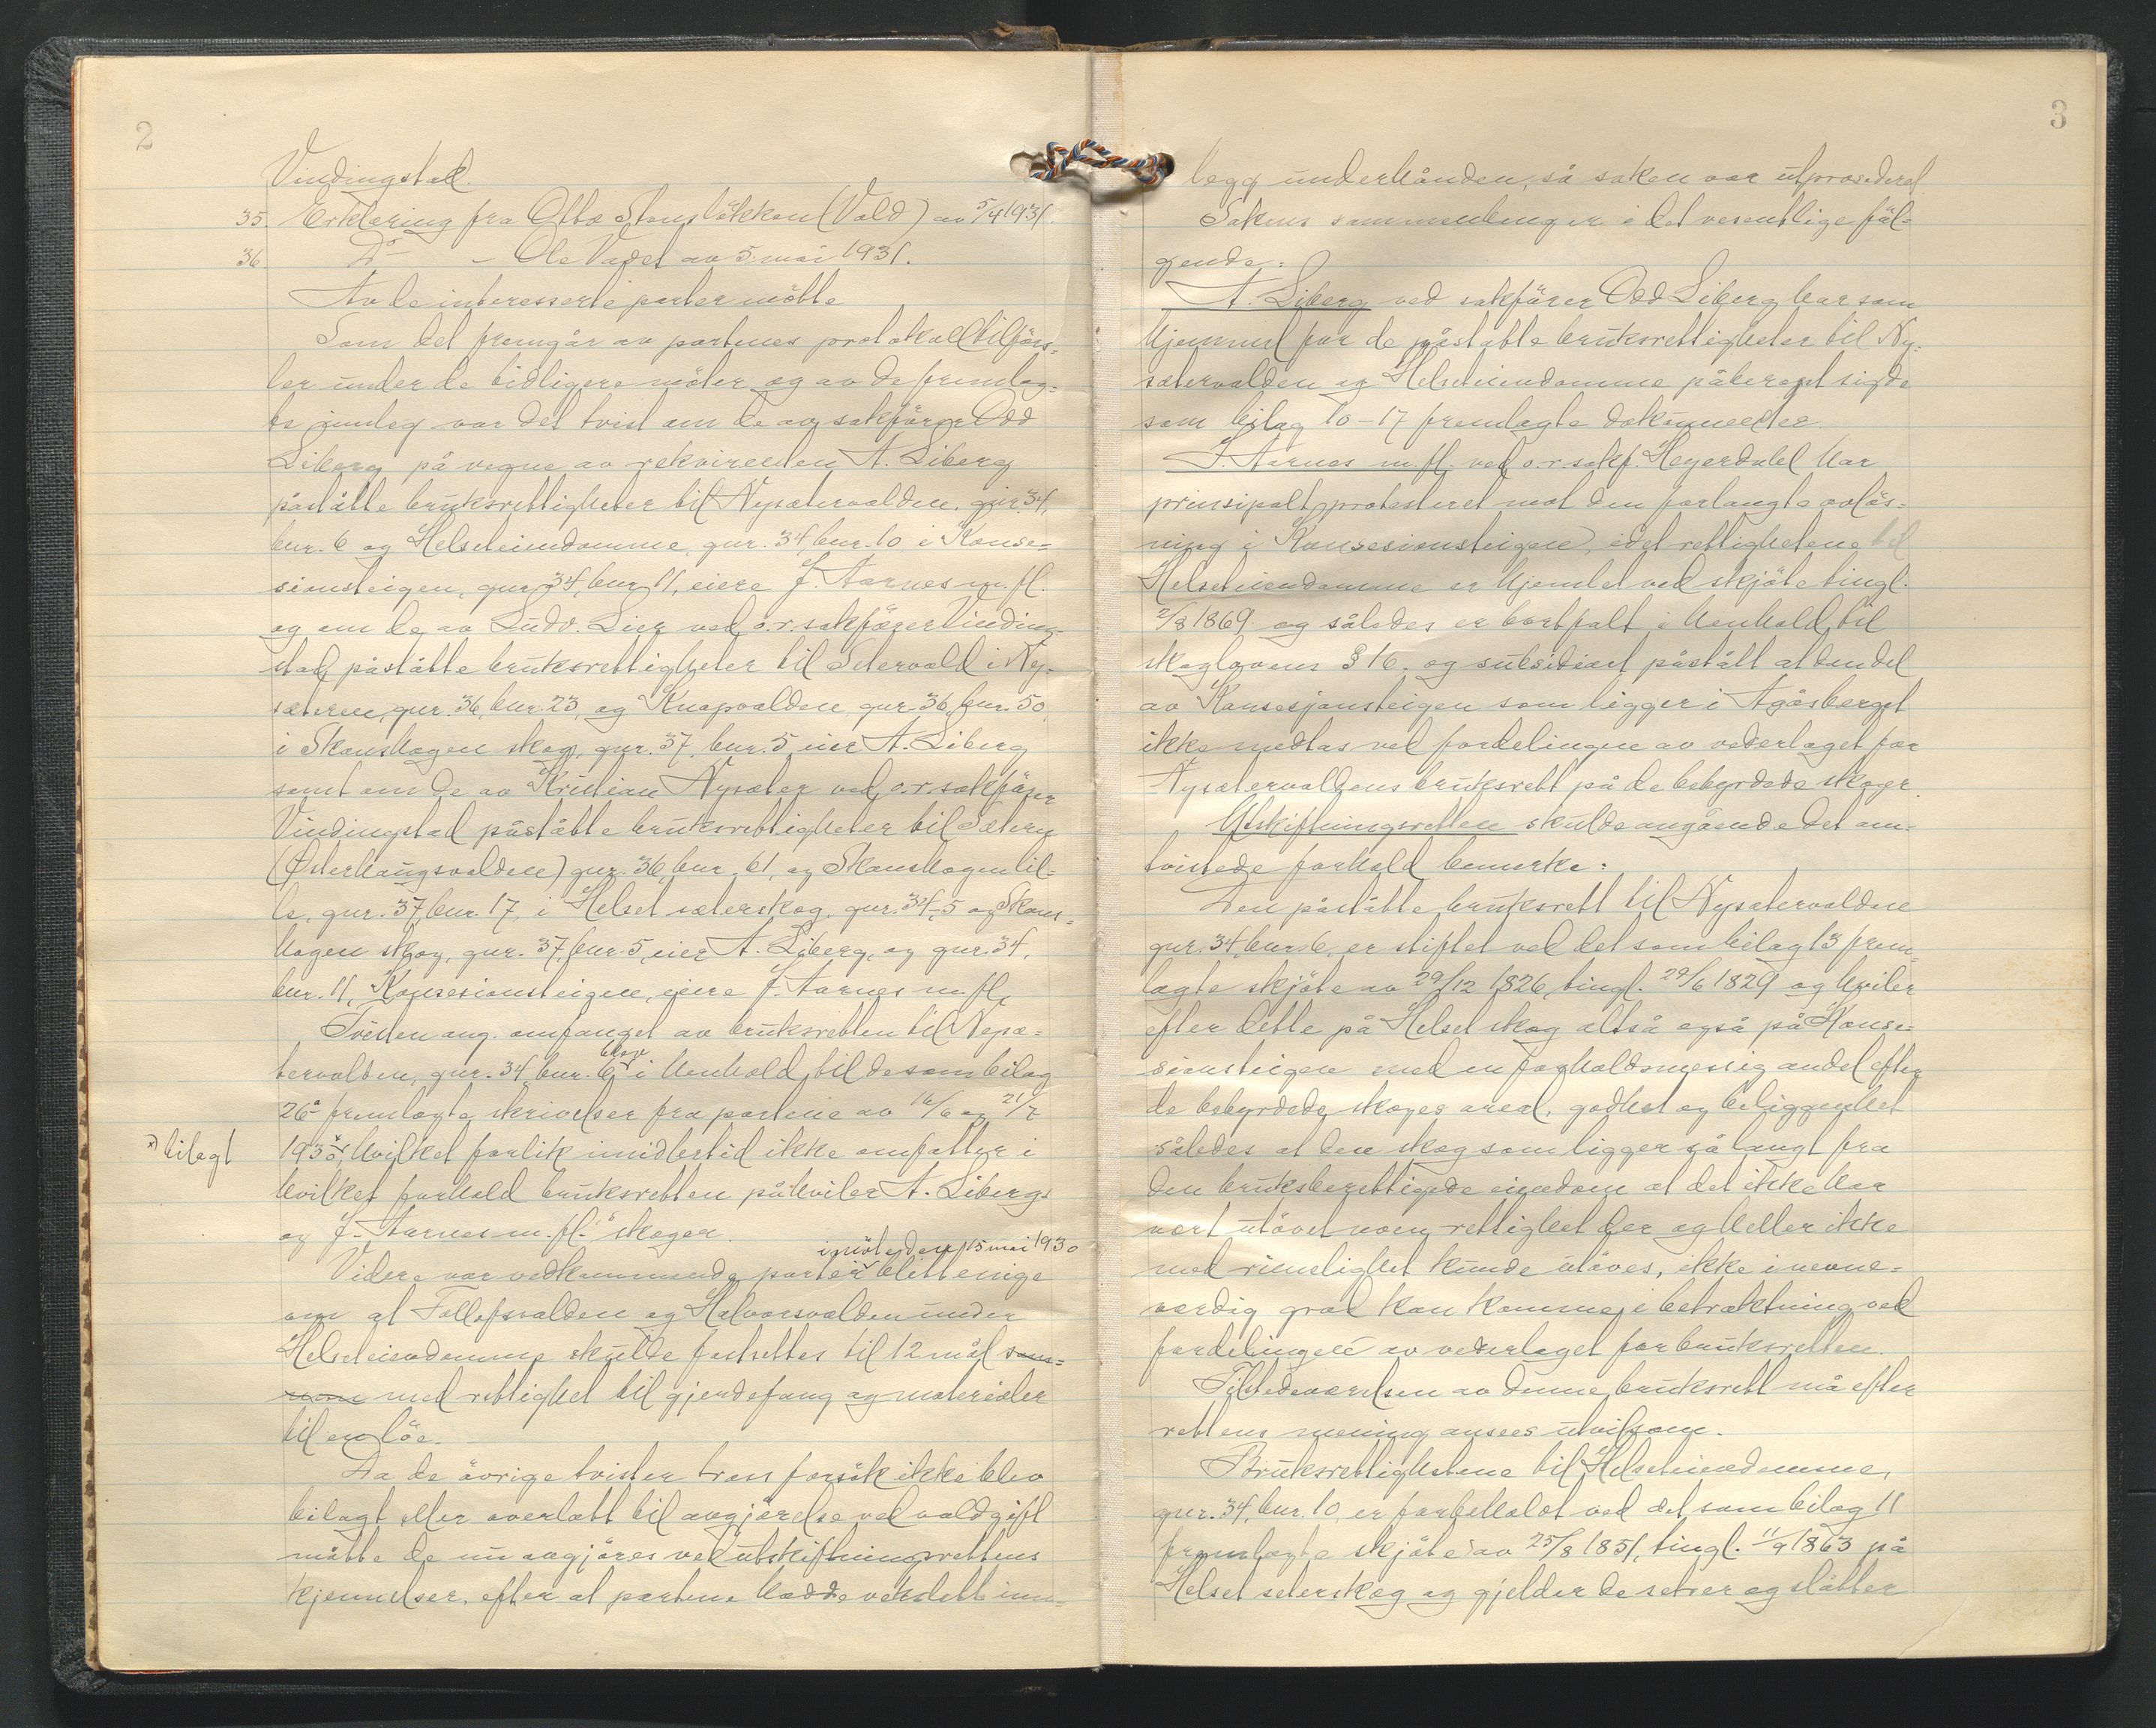 2
Vindingstad.
35. Erklæring fra Otto Stensløkken (Vold) av 5/4 1931.
36. Do - Ole Vadet av 5. mai 1931.
Av de interesserte parter møtte
Som det fremgår av partenes protokolltilførs-
ler under de tidligere møter og av de fremlag-
te innleg var det tvist om de av sakfører Odd
Liberg på vegne av rekvirenten A. Liberg
påståtte bruksrettigheter til Nysætervolden, gnr. 34,
bnr. 6 og Helseteiendomme, gnr. 34, bnr. 10 i Konse-
sionsteigen, gnr. 34, bnr. 11, eiere J. Aarnes m. fl.
og om de av Ludv. Lier ved o.r.sakfører Vinding-
stad påståtte bruksrettigheter til Setervold i Ny-
seteren, gnr. 36, bnr. 23, og Knapvolden, gnr. 36, bnr. 50,
i Skanshagen skog, gnr. 37, bnr. 5, eier A. Liberg
samt om de av Kristian Nysæter ved o.r.sakfører
Vindingstad påståtte bruksrettigheter til Sætern
(Østerhaugsvolden) gnr. 36, bnr. 61, og Skanshagen lil-
le, gnr. 37, bnr. 17, i Helset seterskog, gnr. 34, 5 og Skans-
hagen skog, gnr. 37, bnr. 5, eier A. Liberg, og gnr. 34,
bnr. 11, Konsesionsteigen, eiere J. Aarnes m. fl.
Tvisten ang. omfanget av bruksretten til Nysæ-
tervolden, gnr. 34, bnr. 6 blev i henhold til de som bilag
26a fremlagte skrivelser fra partene av 16/6 og 21/7
x) bilagt
1930x, hvilket forlik imidlertid ikke omfatter i
hvilket forhold bruksretten påhviler A. Libergs
og J. Aarnes m. fl.s skoger.
i møte den 15 mai 1930
Videre var vedkommende parter blitt enige
om at Tollefsvolden og Halvorsvolden under
Helseteiendomme skulde fastsettes til 12 mål sam-
men med rettighet til gjerdefang og materialer
til en löe.
Da de øvrige tvister tross forsøk ikke blev
bilagt eller overlatt til avgjørelse ved voldgift
måtte de nu avgjøres ved utskiftningsrettens
kjennelser, efter at partene hadde vekslett inn-
3
legg underhånden, så saken var utprosederet.
Sakens sammenheng er i det vesentlige føl-
gende:
A. Liberg ved sakfører Odd Liberg har som
hjemmel for de påståtte bruksrettigheter til Ny-
sætervolden og Helseteiendomme påberopt sig de
som bilag 10-17 fremlagte dokumenter.
J. Aarnes m. fl. ved o.r.sakf. Heyerdahl har
prinsipalt protesteret mot den forlangte avløs-
ning i Konsesionsteigen, idet rettighetene til
Helseteiendomme er hjemlet ved skjøte tingl.
2/8 1869 og således er bortfalt i henhold til
skoglovens § 16. og subsidiært påstått at den del
av Konsesjonsteigen som ligger i Agåsberget
ikke medtas ved fordelingen av vederlaget for
Nysætervoldens bruksrett på de bebyrdede skoger.
Utskiftningsretten skulde angående det om-
tvistede forhold bemerke:
Den påståtte bruksrett til Nysætervolden
gnr. 34, bnr. 6, er stiftet ved det som bilag 13 frem-
lagte skjøte av 29/12 1826, tingl. 29/6 1829 og hviler
efter dette på Helset skog altså også på Konse-
sionsteigen med en forholdsmessig andel efter
de bebyrdede skoges areal, godhet og beliggenhet
således at den skog som ligger så langt fra
den bruksberettigede eiendom at det ikke har
vært utøvet noen rettighet der og heller ikke
med rimelighet kunde utøves, ikke i nevne-
verdig grad kan komme i betraktning ved
fordelingen av vederlaget for bruksretten.
Tilstedeværelsen av denne bruksrett må efter
rettens mening ansees utvilsom.
Bruksrettighetene til Helseteiendomme,
gnr. 34, bnr. 10, er forbeholdt ved det som bilag 11
fremlagte skjøte av 25/8 1851, tingl. 11/9 1863 på
Helset seterskog og gjelder de setrer og slåtter